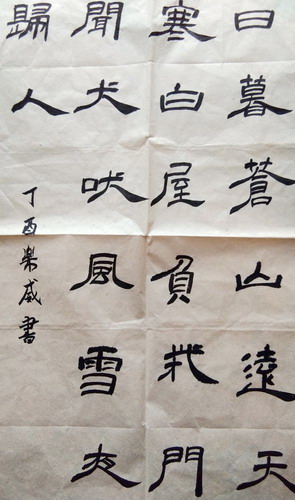 日暮蒼山遠天
寒白屋負柴門
聞犬吠風雪夜
歸人
丁酉樂威書